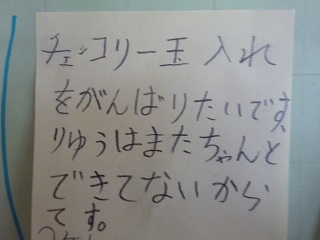 チェッコリー玉入れ
をがんばりたいです、
りゅうはまたちゃんと
できてないから
です。